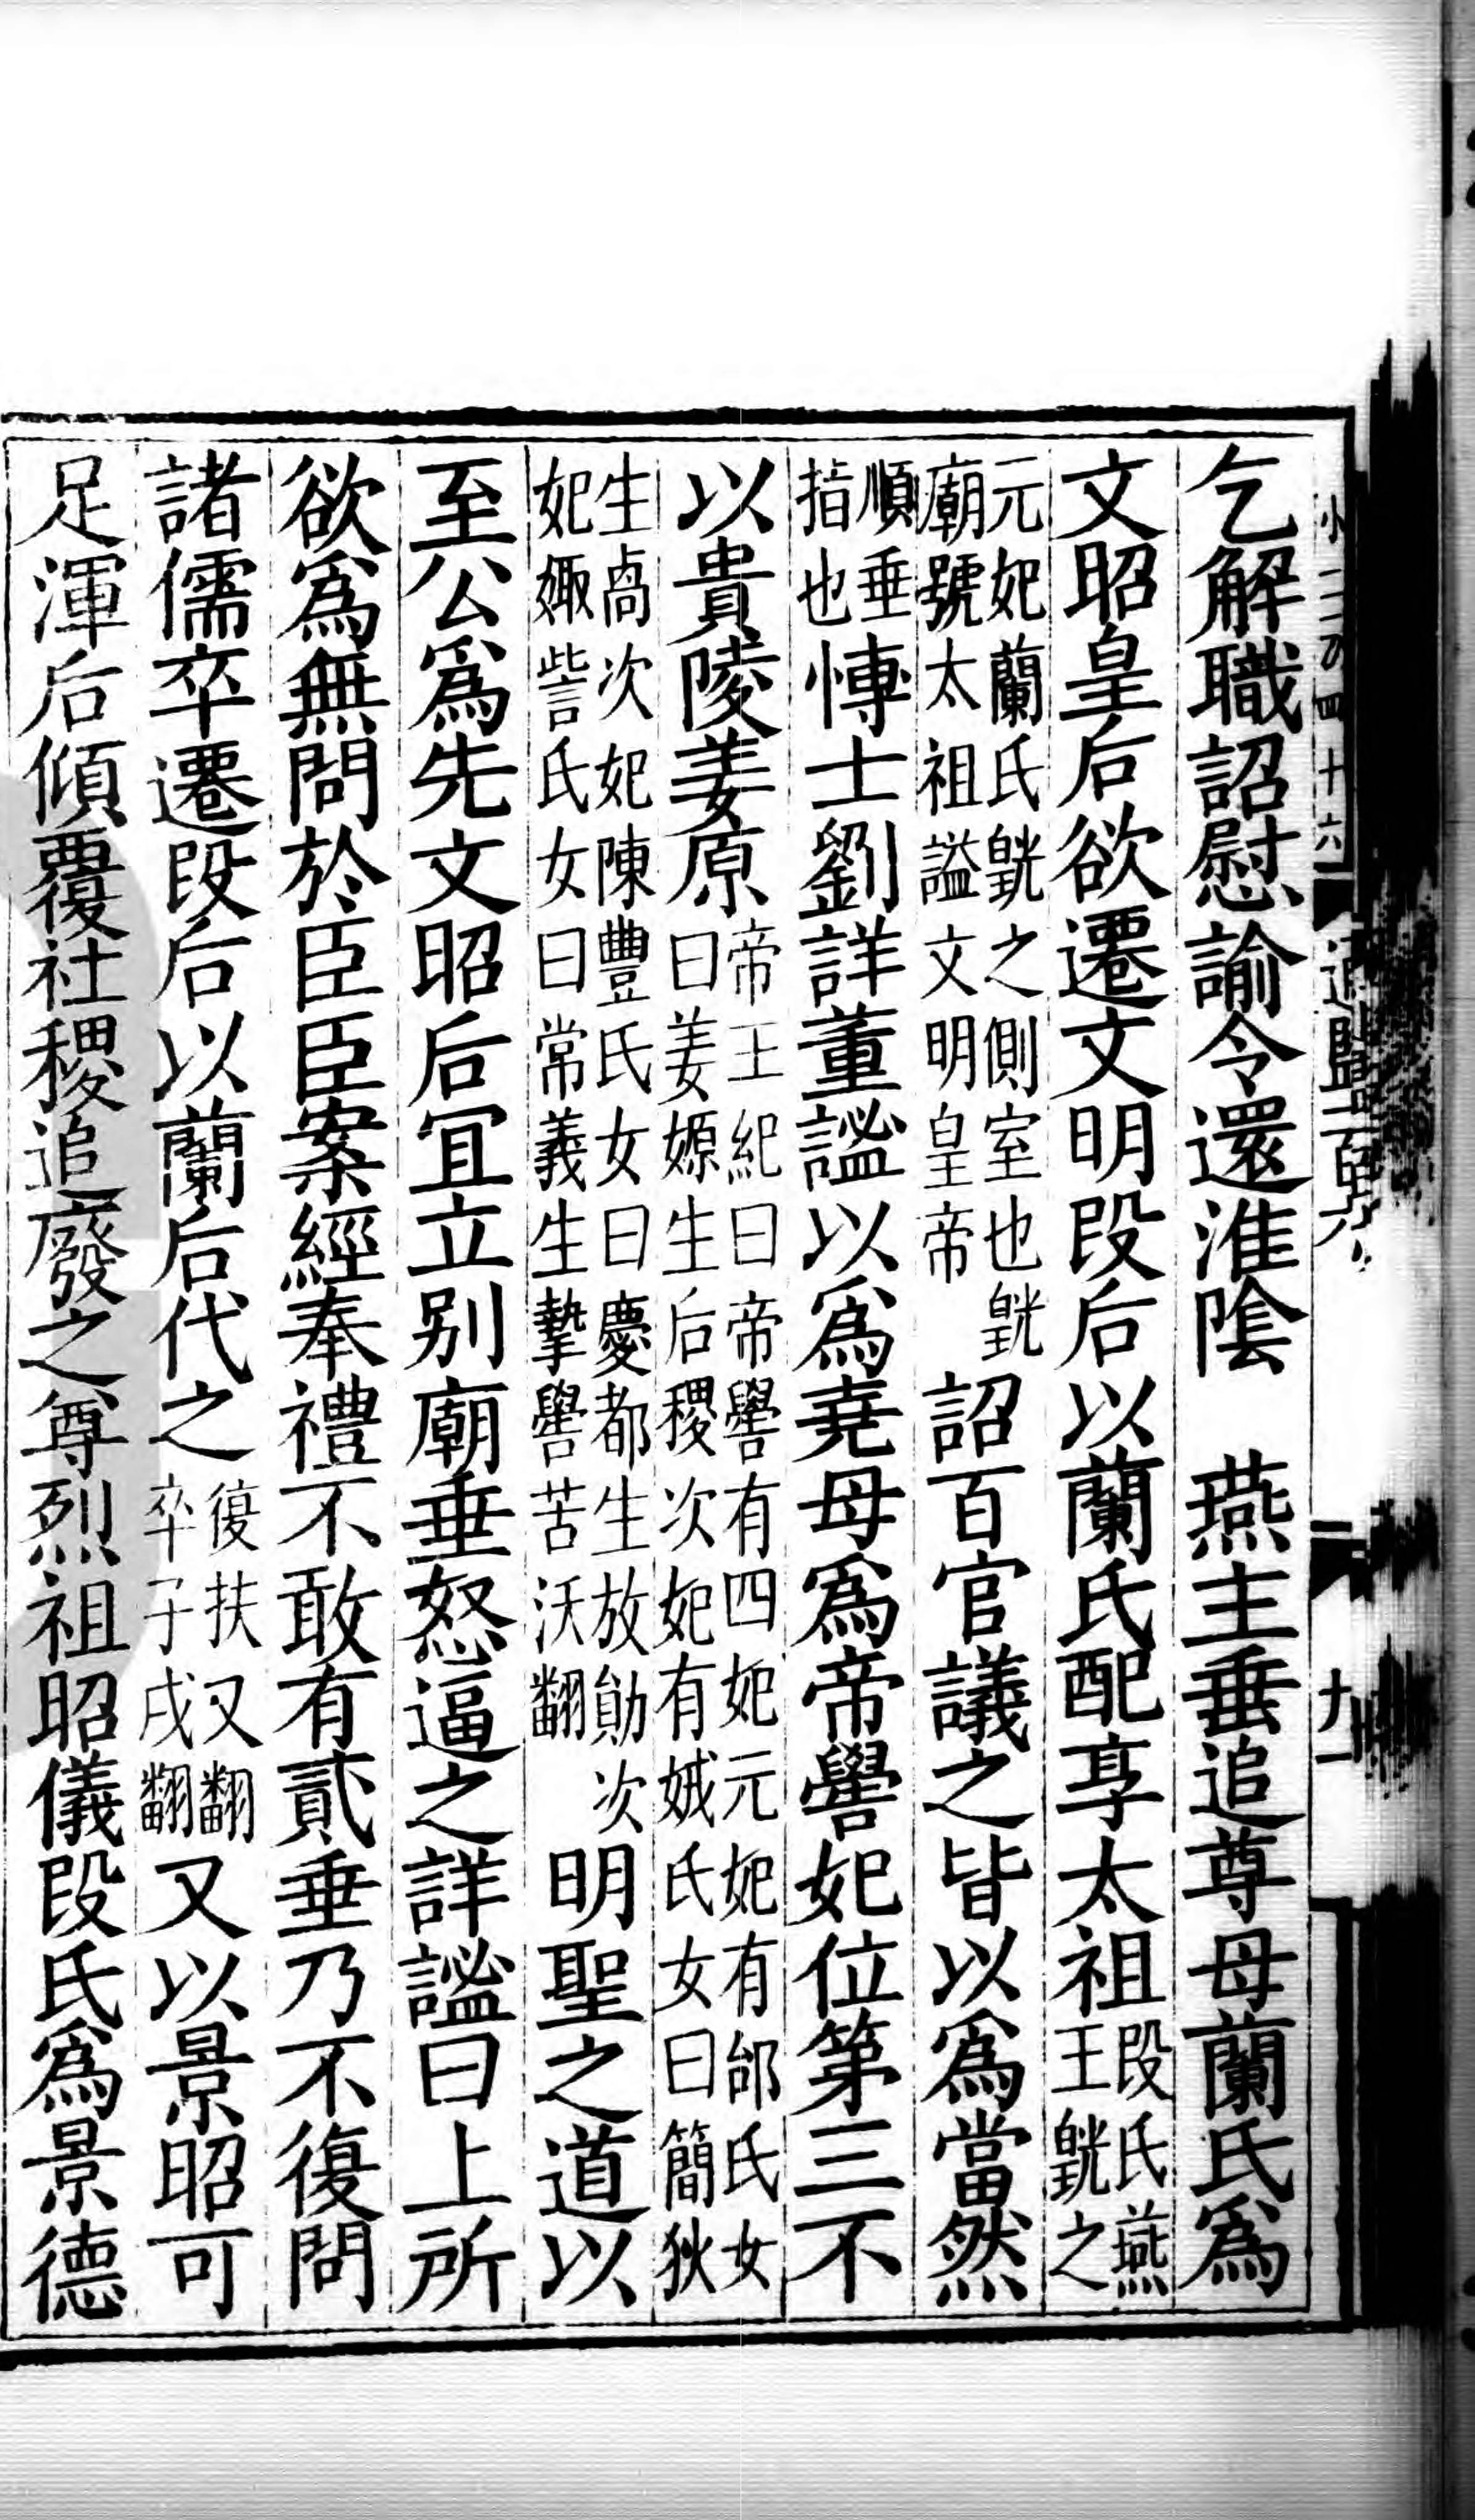 乞解職詔慰諭令還淮隂　燕主垂追尊母蘭氏爲
文昭皇后欲遷文明段后以蘭氏配享太祖段氏燕王皝之
元妃蘭氏皝之側室也皝廟號太祖謚文明皇帝詔百官議之皆以爲當然
順垂指也愽士劉詳董謐以爲堯母爲帝嚳妃位第三不
以貴陵姜原帝王紀曰帝嚳有四妃元妃有邰氏女曰姜嫄生后稷次妃有娀氏女曰簡狄
生卨次妃陳豐氏女曰慶都生放勛次妃娵訾氏女曰常義生摯嚳苦沃翻明聖之道以
至公爲先文昭后宜立别廟垂怒逼之詳謐曰上所
欲爲無問於臣臣案經奉禮不敢有貳垂乃不復問
諸儒卒遷段后以蘭后代之復扶又翻卒子戌翻又以景昭可
足渾后傾覆社稷追廢之尊烈祖昭儀段氏爲景德